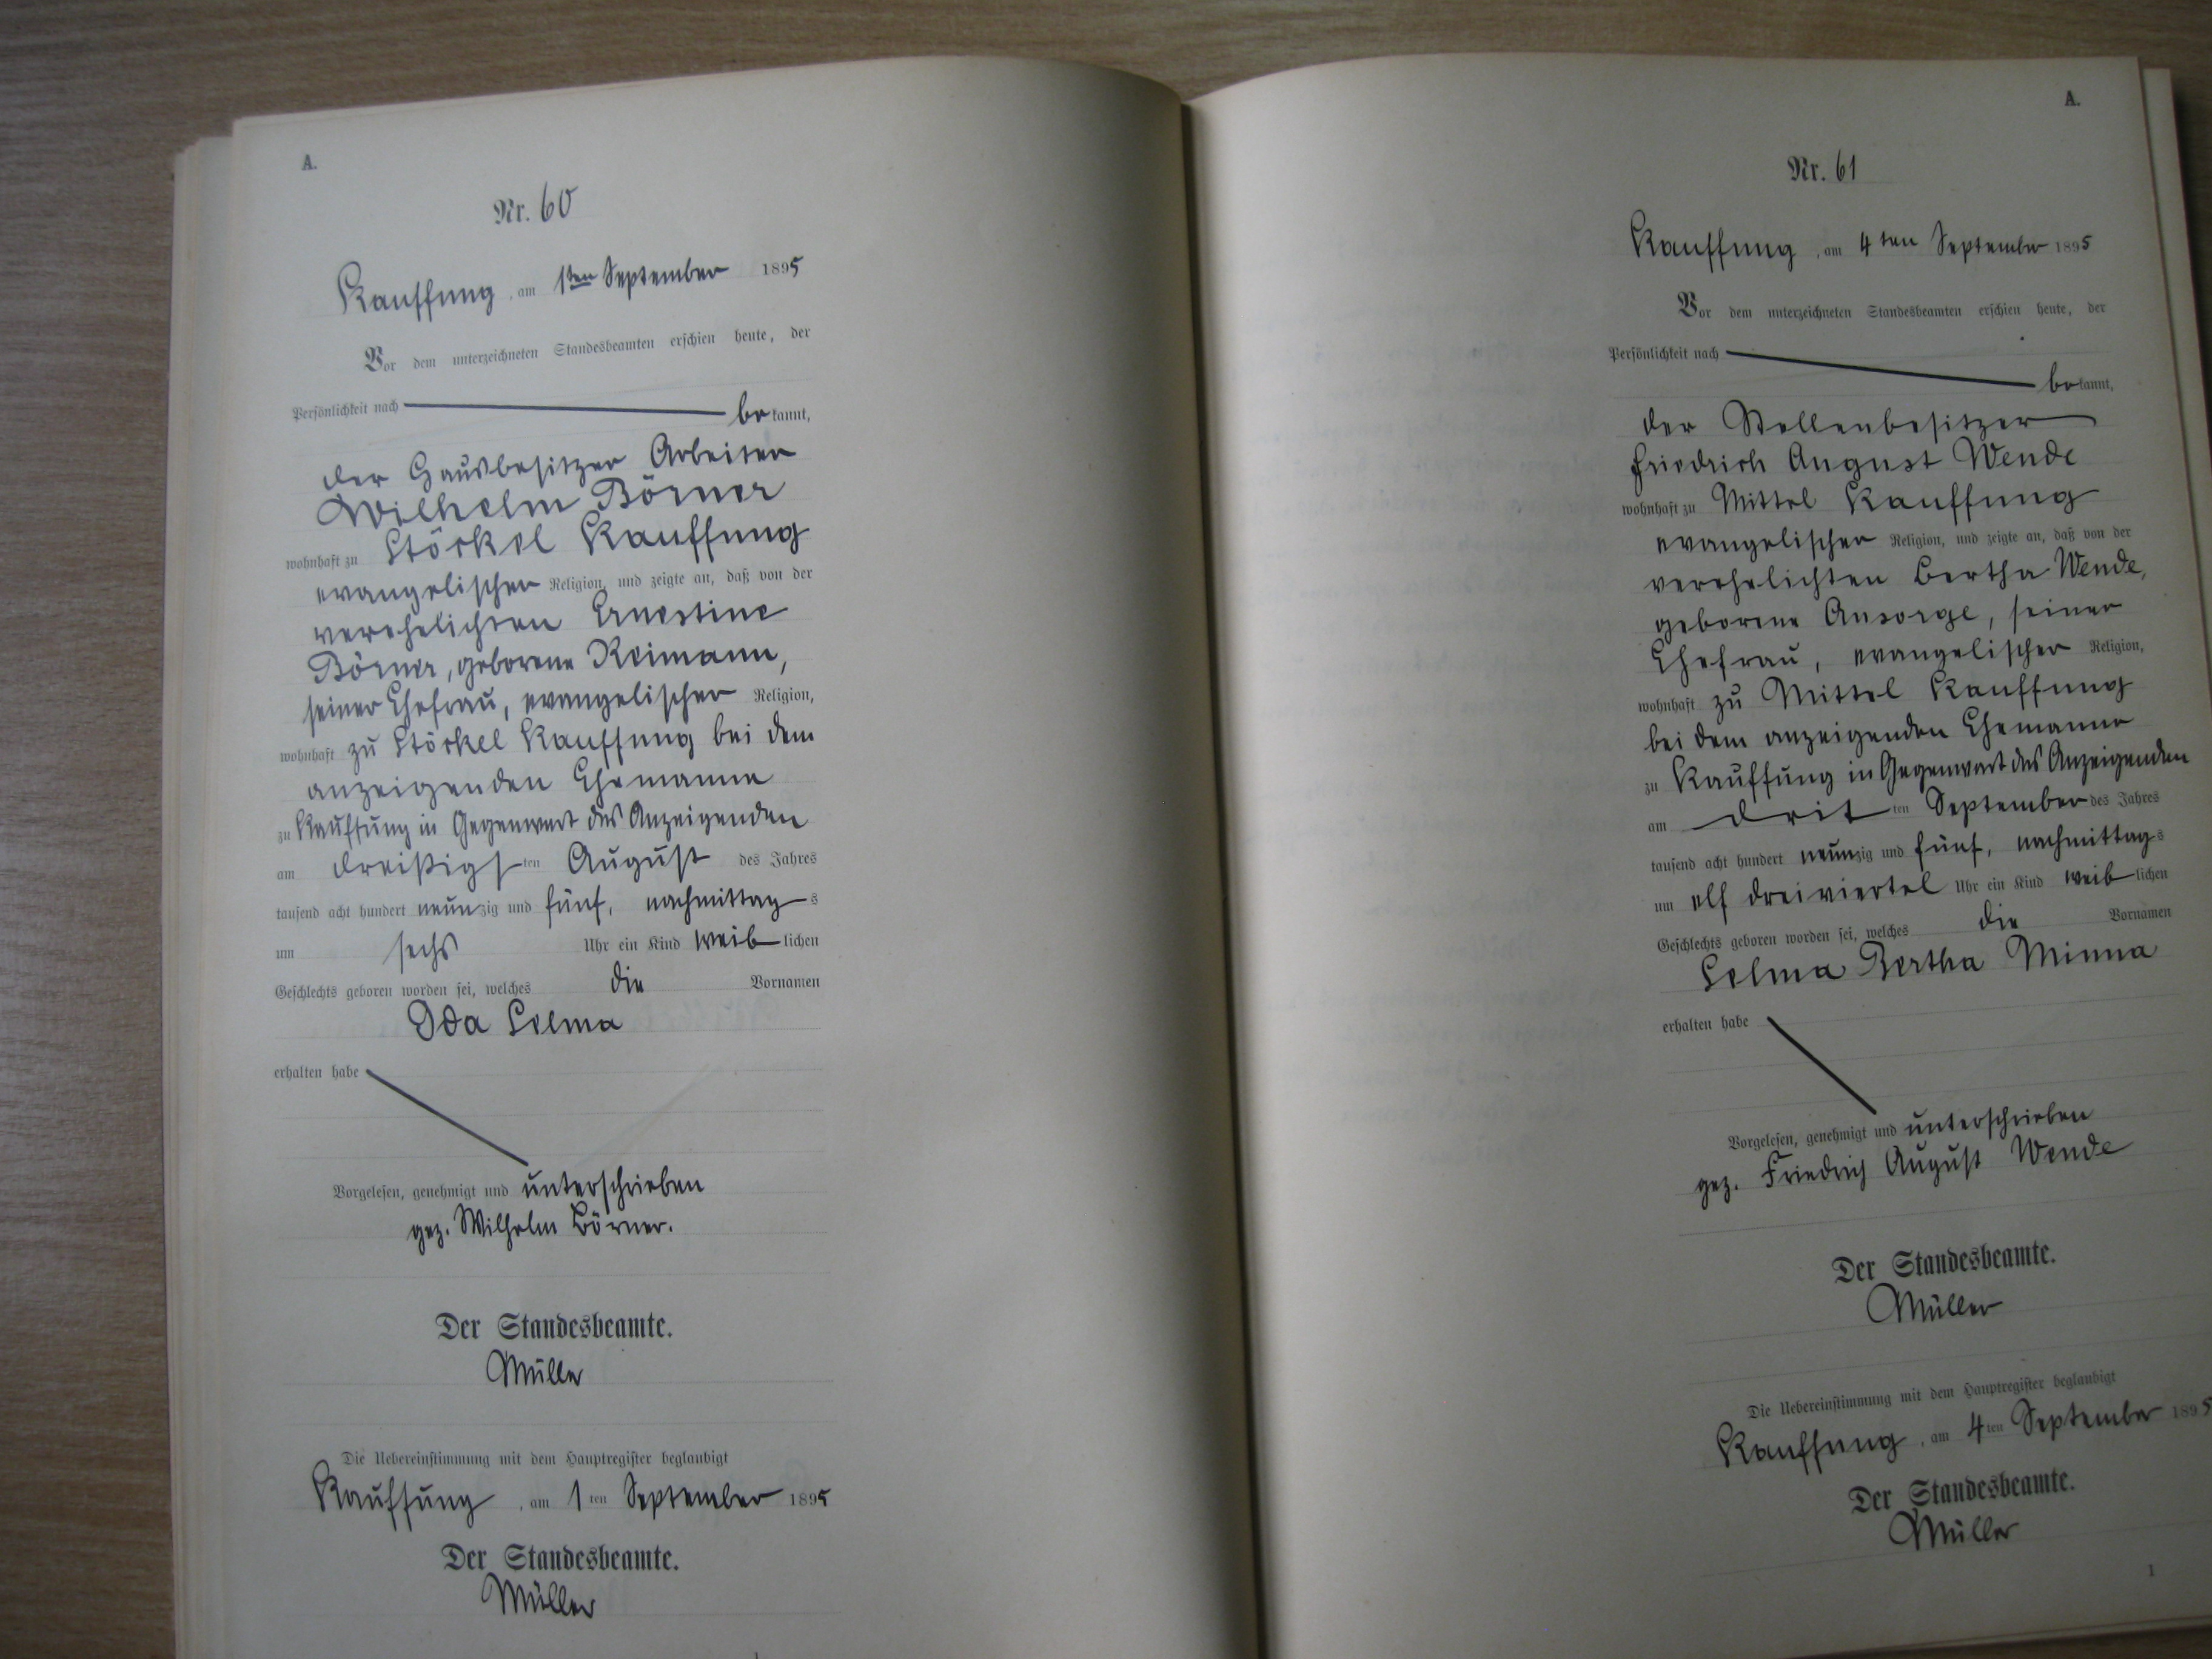 A.
Nr. 60
Kauffung, am 1ten September 1895
Vor dem unterzeichneten Standesbeamten erschien heute, der
Persönlichkeit nach bekannt,
der Hausbesitzer Arbeiter
Wilhelm Börner
wohnhaft zu Stöckel Kauffung
evangelischer Religion, und zeigte an, daß von der
verehelichten Ernestine
Börner, geborene Reimann,
seiner Ehefrau, evangelischer Religion,
wohnhaft zu Stöckel Kauffung bei dem
anzeigenden Ehemanne
zu Kauffung in Gegenwart des Anzeigenden
am dreißigsten August des Jahres
tausend acht hundert neunzig und fünf, nachmittags
um sechs Uhr ein Kind weiblichen
Geschlechts geboren worden sei, welches die Vornamen
Ida Selma
erhalten habe
Vorgelesen, genehmigt und unterschrieben
gez. Wilhelm Börner.
Der Standesbeamte.
Müller
Die Uebereinstimmung mit dem Hauptregister beglaubigt
Kauffung, am 1ten September 1895
Der Standesbeamte.
Müller
A.
Nr. 61
Kauffung, am 4ten September 1895
Vor dem unterzeichneten Standesbeamten erschien heute, der
Persönlichkeit nach bekannt,
der Stellenbesitzer
Friedrich August Wende
wohnhaft zu Mittel Kauffung
evangelischer Religion, und zeigte an, daß von der
verehelichten Bertha Wende,
geborene Ansorge, seiner
Ehefrau, evangelischer Religion,
wohnhaft zu Mittel Kauffung
bei dem anzeigenden Ehemanne
zu Kauffung in Gegenwart des Anzeigenden
am dritten September des Jahres
tausend acht hundert neunzig und fünf, nachmittags
um elf dreiviertel Uhr ein Kind weiblichen
Geschlechts geboren worden sei, welches die Vornamen
Selma Bertha Minna
erhalten habe
Vorgelesen, genehmigt und unterschrieben
gez. Friedrich August Wende
Der Standesbeamte.
Müller
Die Uebereinstimmung mit dem Hauptregister beglaubigt
Kauffung, am 4ten September 1895
Der Standesbeamte.
Müller
1